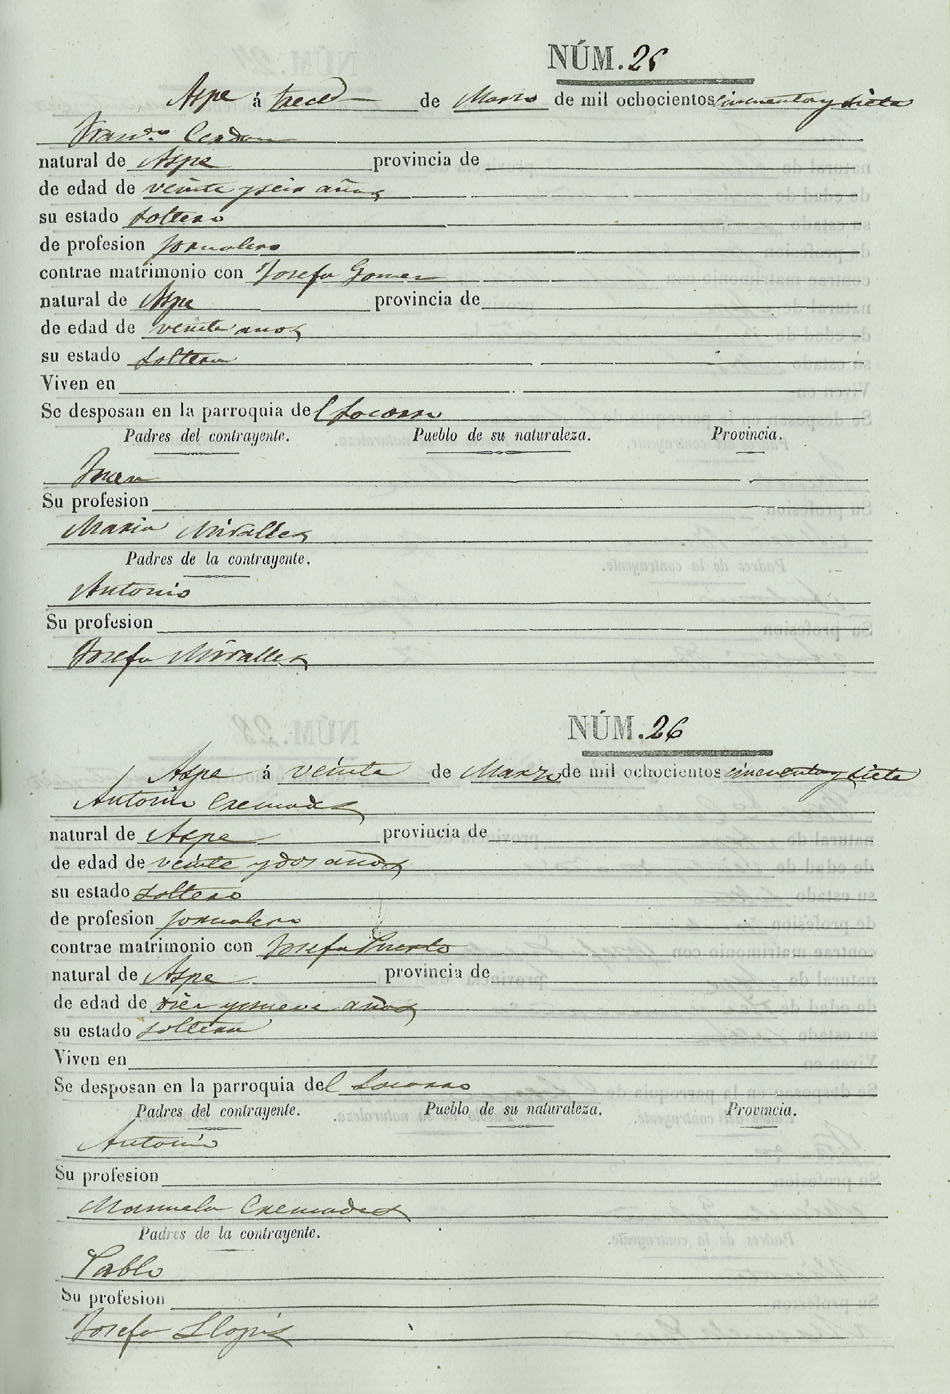 NÚM. 25
Aspe á trece de Marzo de mil ochocientos cincuenta y siete
Franco. Cerdan
natural de Aspe provincia de
de edad de veinte y seis años
su estado soltero
de profesion jornalero
contrae matrimonio con Josefa Gomez
natural de Aspe provincia de
de edad de veinte años
su estado soltera
Viven en
Se desposan en la parroquia del Socorro
Padres del contrayente. Pueblo de su naturaleza. Provincia.
Juan
Su profesion
Maria Miralles
Padres de la contrayente.
Antonio
Su profesion
Josefa Miralles
NÚM. 26
Aspe á veinte de Marzo de mil ochocientos cincuenta y siete
Antonio Cremades
natural de Aspe provincia de
de edad de veinte y dos años
su estado soltero
de profesion jornalero
contrae matrimonio con Josefa Puerto
natural de Aspe provincia de
de edad de diez y nueve años
su estado soltera
Viven en
Se desposan en la parroquia del Socorro
Padres del contrayente. Pueblo de su naturaleza. Provincia.
Antonio
Su profesion
Manuela Cremades
Padres de la contrayente.
Pablo
Su profesion
Josefa Llopis